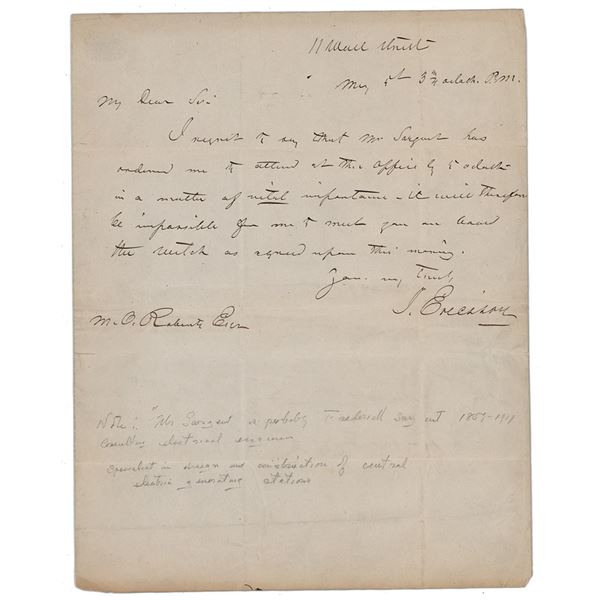 11 Wall Street
May 5th 3 3/4 oclock P.M.
My Dear Sir
I regret to say that Mr Sargent has
ordered me to attend at this office by 5 oclock
in a matter of vital importance - it will therefore
be impossible for me to meet you on board
the Witch as agreed upon this morning.
Yours very truly,
J. Ericsson
M. O. Roberts Esqr
Note: "Mr Sargent is probably Frederick Sargent 1859-1919
consulting electrical engineer
specialist in design and construction of central
electric generating stations